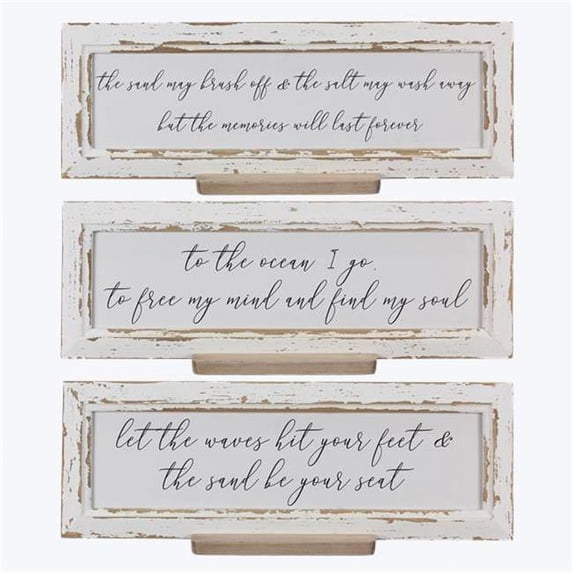 the sand may brush off & the salt may wash away
but the memories will last forever
to the ocean I go.
to free my mind and find my soul
let the waves hit your feet &
the sand be your seat